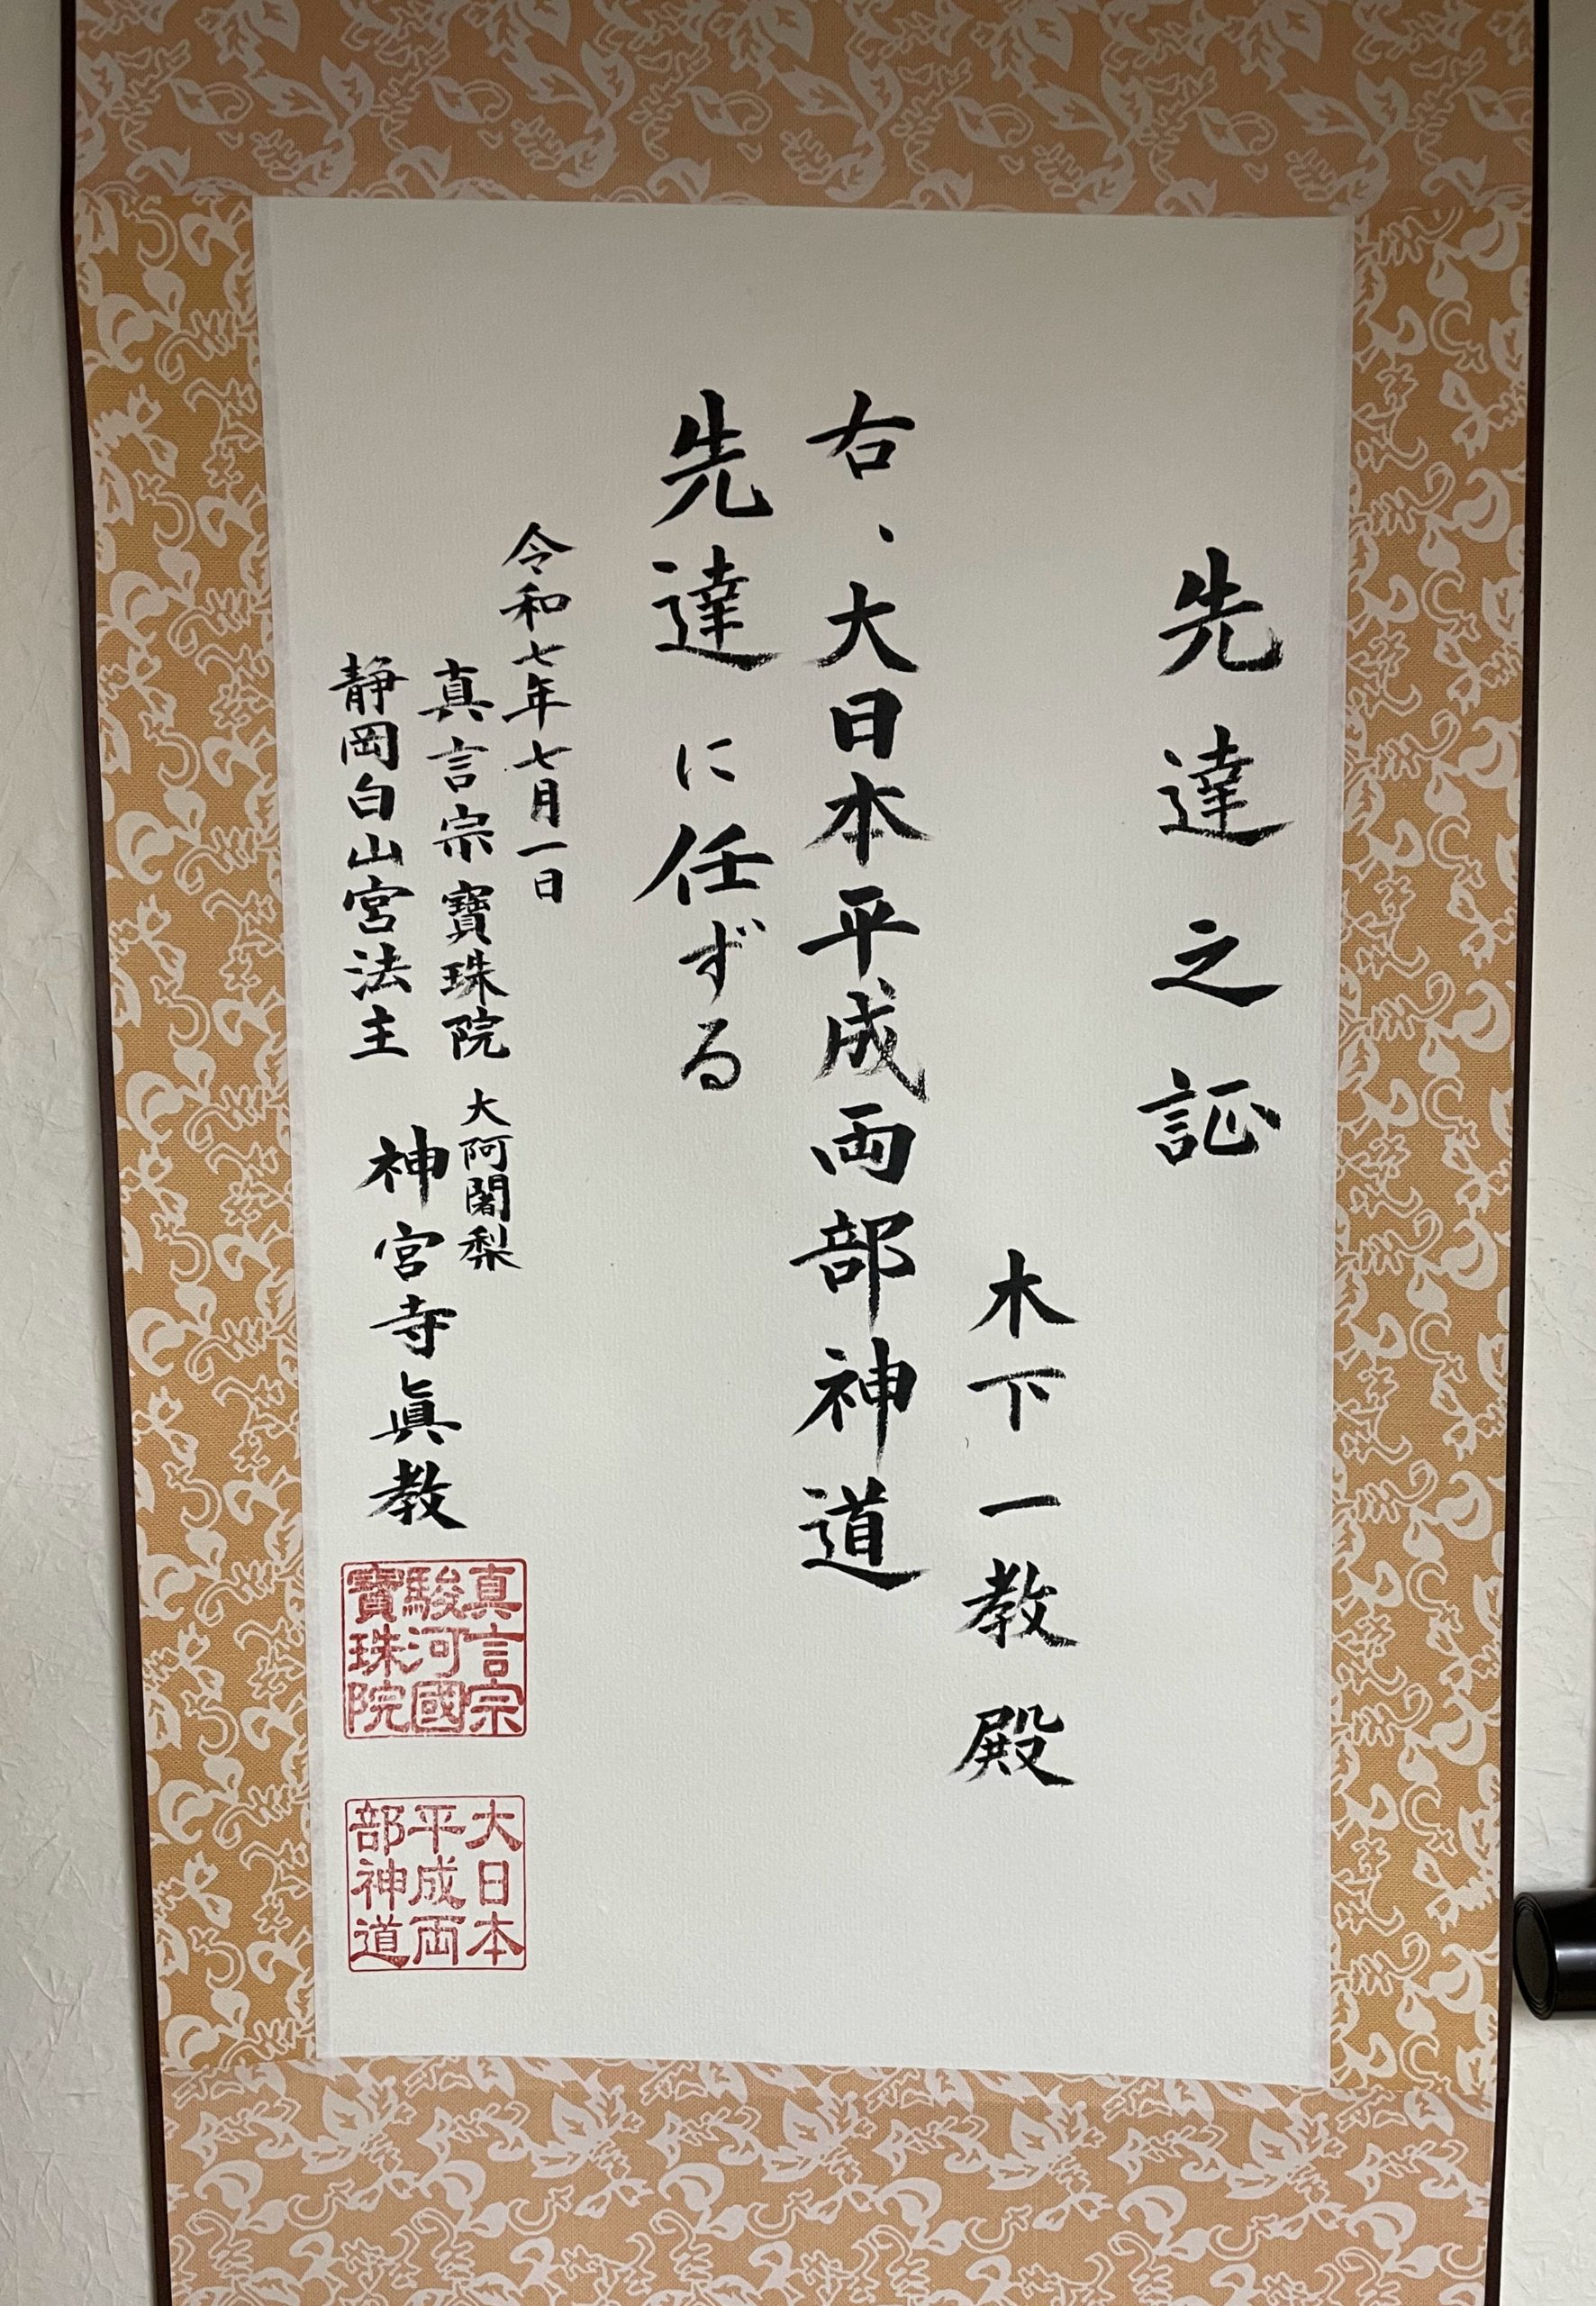 先達之証
木下一教殿
右、大日本平成両部神道
先達に任ずる
令和七年七月一日
真言宗寶珠院 大阿闍梨
静岡白山宮法主 神宮寺眞教
真言宗
駿河國
寳珠院
大日本
平成両
部神道